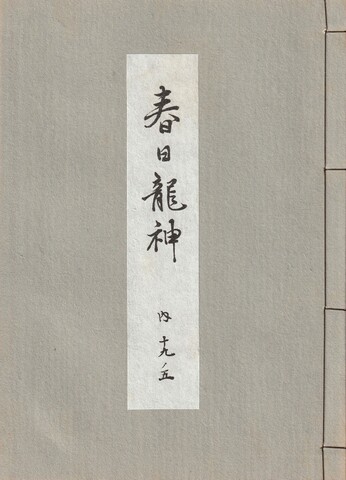 春日龍神
内 十九ノ五